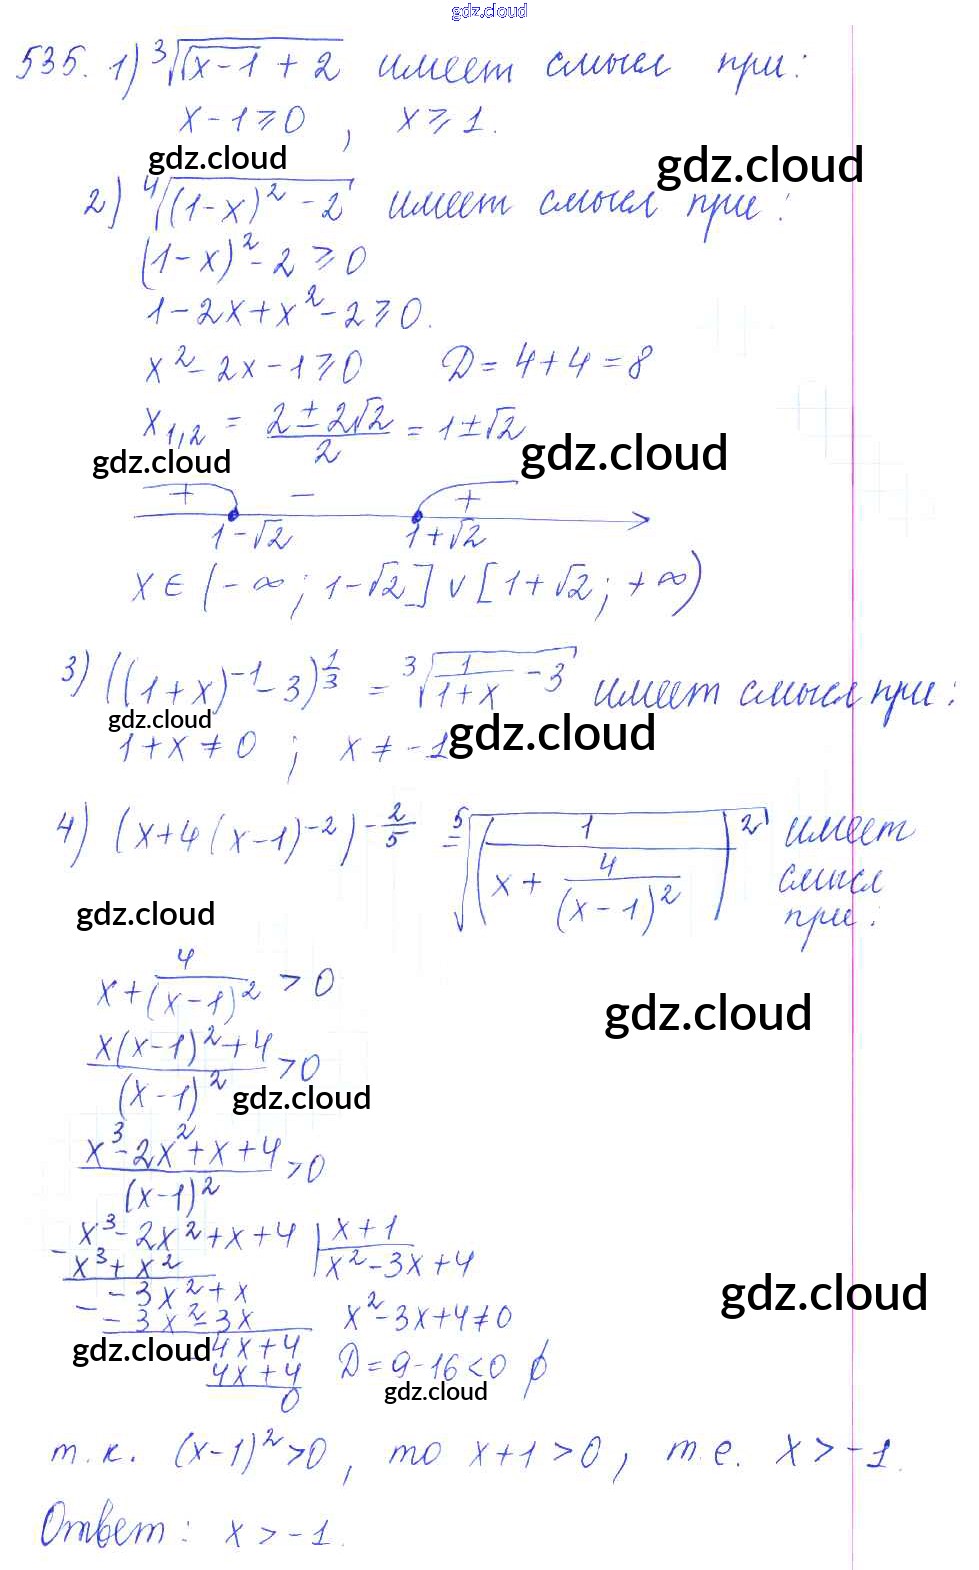 gdz.cloud
535. 1) ∛(√(x-1) + 2) имеет смысл при:
x-1⩾0, x⩾1.
gdz.cloud
gdz.cloud
2) ⁴√((1-x)² - 2) имеет смысл при:
(1-x)² - 2 ⩾ 0
1-2x+x²-2⩾0.
x²-2x-1⩾0 D=4+4=8
x₁,₂ = (2±2√2)/2 = 1±√2
gdz.cloud
gdz.cloud
+ − +
1-√2 1+√2
x∈(-∞; 1-√2] ∨ [1+√2; +∞)
3) ((1+x)⁻¹-3)^(1/3) = ∛(1/(1+x) - 3) имеет смысл при:
gdz.cloud
1+x≠0; x≠-1
gdz.cloud
4) (x+4(x-1)⁻²)^(-2/5) = ⁵√((1/(x+4/(x-1)²))²) имеет
смысл
при:
gdz.cloud
x+4/(x-1)² > 0
gdz.cloud
(x(x-1)²+4)/(x-1)² >0
gdz.cloud
(x³-2x²+x+4)/(x-1)² >0
-x³-2x²+x+4 | x+1
x³+x² x²-3x+4
- -3x²+x
-3x²-3x x²-3x+4≠0
gdz.cloud
gdz.cloud
4x+4 D=9-16<0 ∅
4x+4
gdz.cloud
0
т.к. (x-1)²>0, то x+1>0, т.е. x>-1.
Ответ: x>-1.